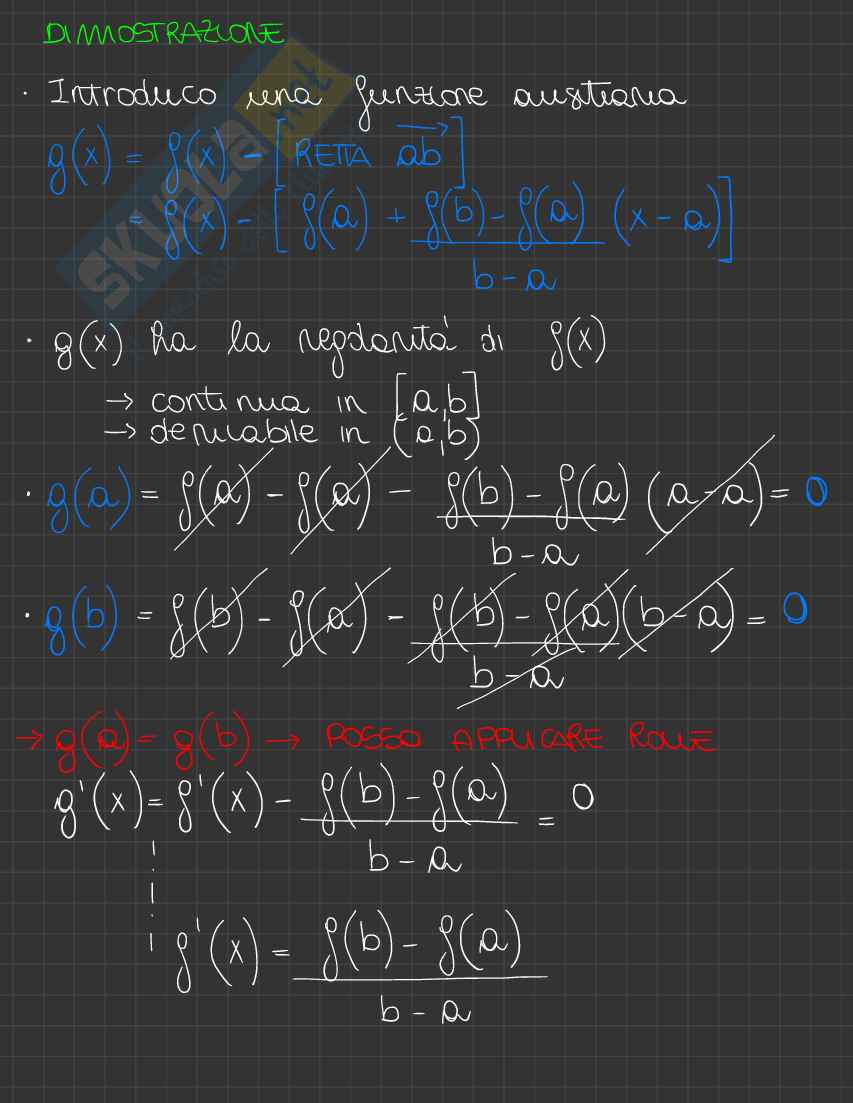 DIMOSTRAZIONE
· Introduco una funzione ausiliaria
g(x) = f(x) - [RETTA ab]
= f(x) - [f(a) + f(b) - f(a) / b - a (x - a)]
· g(x) ha la regolarità di f(x)
→ continua in [a,b]
→ derivabile in (a,b)
· g(a) = f(a) - f(a) - f(b) - f(a) / b - a (a - a) = 0
· g(b) = f(b) - f(a) - f(b) - f(a) / b - a (b - a) = 0
→ g(a) = g(b) → POSSO APPLICARE ROLLE
g'(x) = f'(x) - f(b) - f(a) / b - a = 0
f'(x) = f(b) - f(a) / b - a
SKUOLA.net